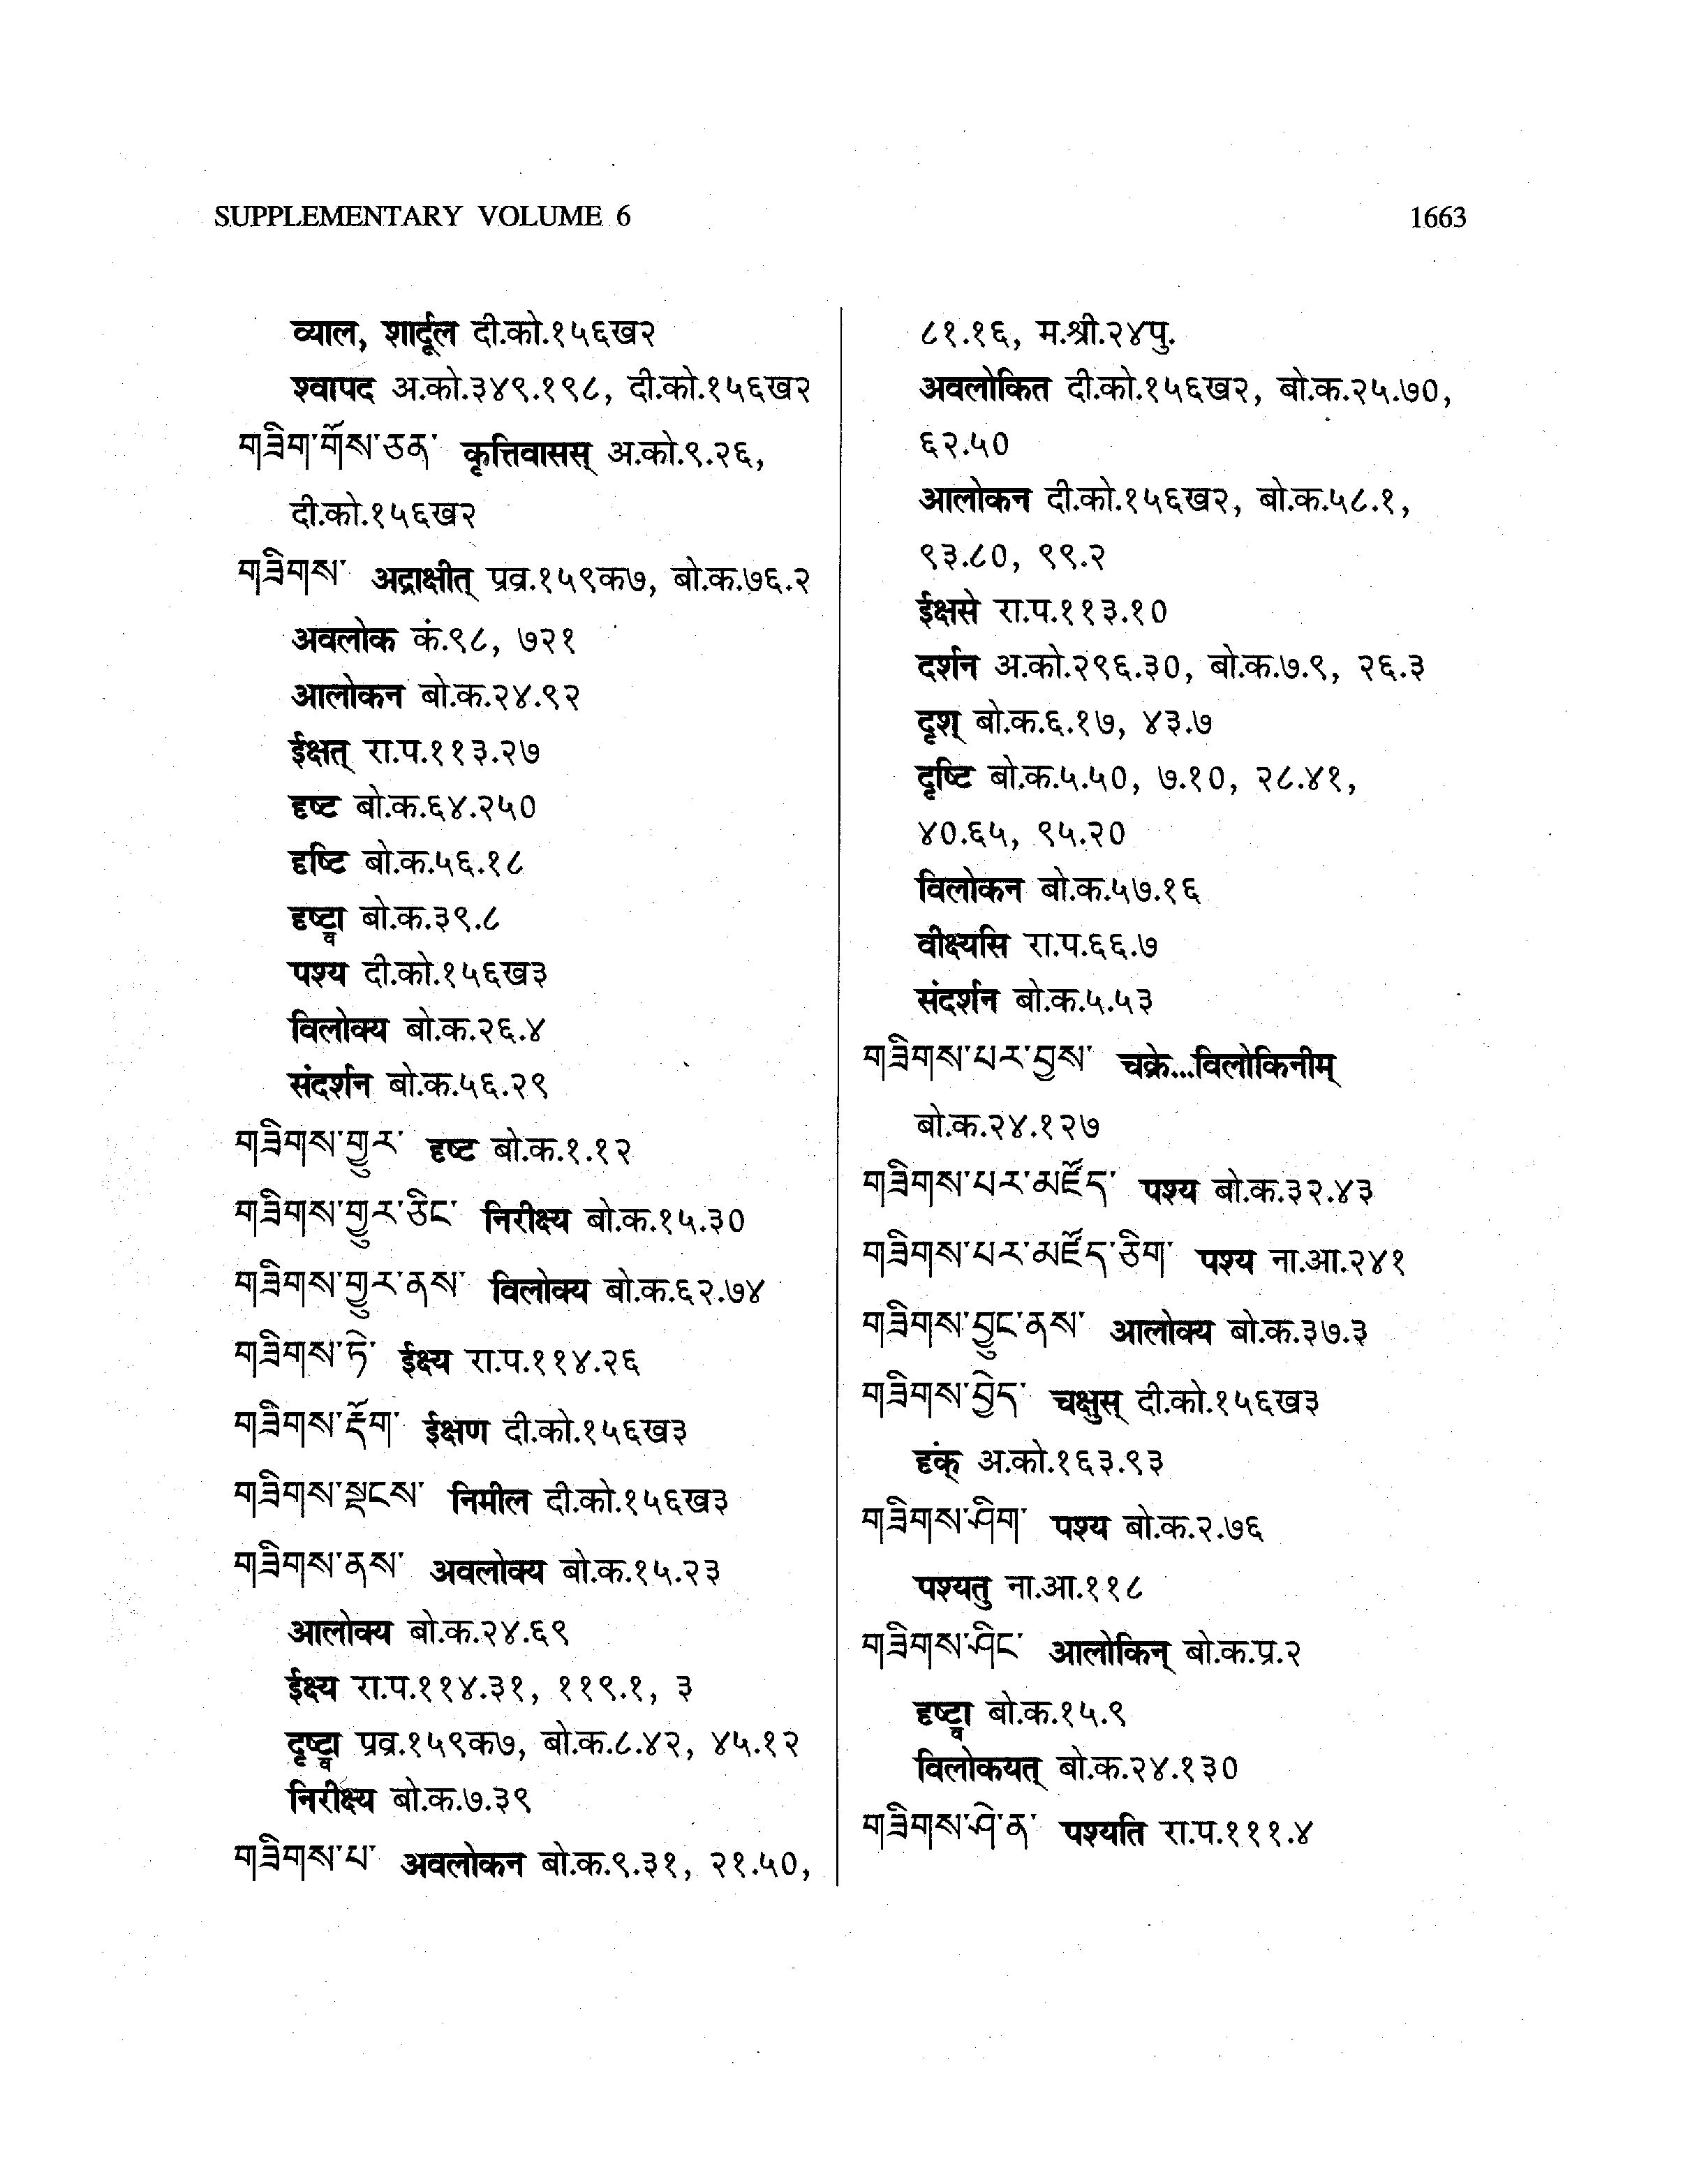 SUPPLEMENTARY VOLUME 6
1663
व्याल, शार्दूल दी.को.१५६ख२
श्वापद अ.को.३४९.१९८, दी.को.१५६ख२
གཟིག་གོས་ཅན་ कृत्तिवासस् अ.को.९.२६,
दी.को.१५६ख२
གཟིགས་ अद्राक्षीत् प्रव्र.१५९क७, बो.क.७६.२
अवलोक कं.९८, ७२१
आलोकन बो.क.२४.९२
ईक्षत् रा.प.११३.२७
दृष्ट बो.क.६४.२५०
दृष्टि बो.क.५६.१८
दृष्ट्वा बो.क.३९.८
पश्य दी.को.१५६ख३
विलोक्य बो.क.२६.४
संदर्शन बो.क.५६.२९
གཟིགས་གྱུར་ दृष्ट बो.क.१.१२
གཟིགས་གྱུར་ཅིང་ निरीक्ष्य बो.क.१५.३०
གཟིགས་གྱུར་ནས་ विलोक्य बो.क.६२.७४
གཟིགས་ཏེ་ ईक्ष्य रा.प.११४.२६
གཟིགས་རྡོག་ ईक्षण दी.को.१५६ख३
གཟིགས་སྟངས་ निमील दी.को.१५६ख३
གཟིགས་ནས་ अवलोक्य बो.क.१५.२३
आलोक्य बो.क.२४.६९
ईक्ष्य रा.प.११४.३१, ११९.१, ३
दृष्ट्वा प्रव्र.१५९क७, बो.क.८.४२, ४५.१२
निरीक्ष्य बो.क.७.३९
གཟིགས་པ་ अवलोकन बो.क.९.३१, २१.५०,
८१.१६, म.श्री.२४पु.
अवलोकित दी.को.१५६ख२, बो.क.२५.७०,
६२.५०
आलोकन दी.को.१५६ख२, बो.क.५८.१,
९३.८०, ९९.२
ईक्षसे रा.प.११३.१०
दर्शन अ.को.२९६.३०, बो.क.७.९, २६.३
दृश् बो.क.६.१७, ४३.७
दृष्टि बो.क.५.५०, ७.१०, २८.४१,
४०.६५, ९५.२०
विलोकन बो.क.५७.१६
वीक्ष्यसि रा.प.६६.७
संदर्शन बो.क.५.५३
གཟིགས་པར་བྱས་ चक्रे...विलोकिनीम्
बो.क.२४.१२७
གཟིགས་པར་མཛོད་ पश्य बो.क.३२.४३
གཟིགས་པར་མཛོད་ཅིག་ पश्य ना.आ.२४१
གཟིགས་བྱུང་ནས་ आलोक्य बो.क.३७.३
གཟིགས་བྱེད་ चक्षुस् दी.को.१५६ख३
दृंक् अ.को.१६३.९३
གཟིགས་ཤིག་ पश्य बो.क.२.७६
पश्यतु ना.आ.११८
གཟིགས་ཤིང་ आलोकिन् बो.क.प्र.२
दृष्ट्वा बो.क.१५.९
विलोकयत् बो.क.२४.१३०
གཟིགས་ཤེ་ན་ पश्यति रा.प.१११.४